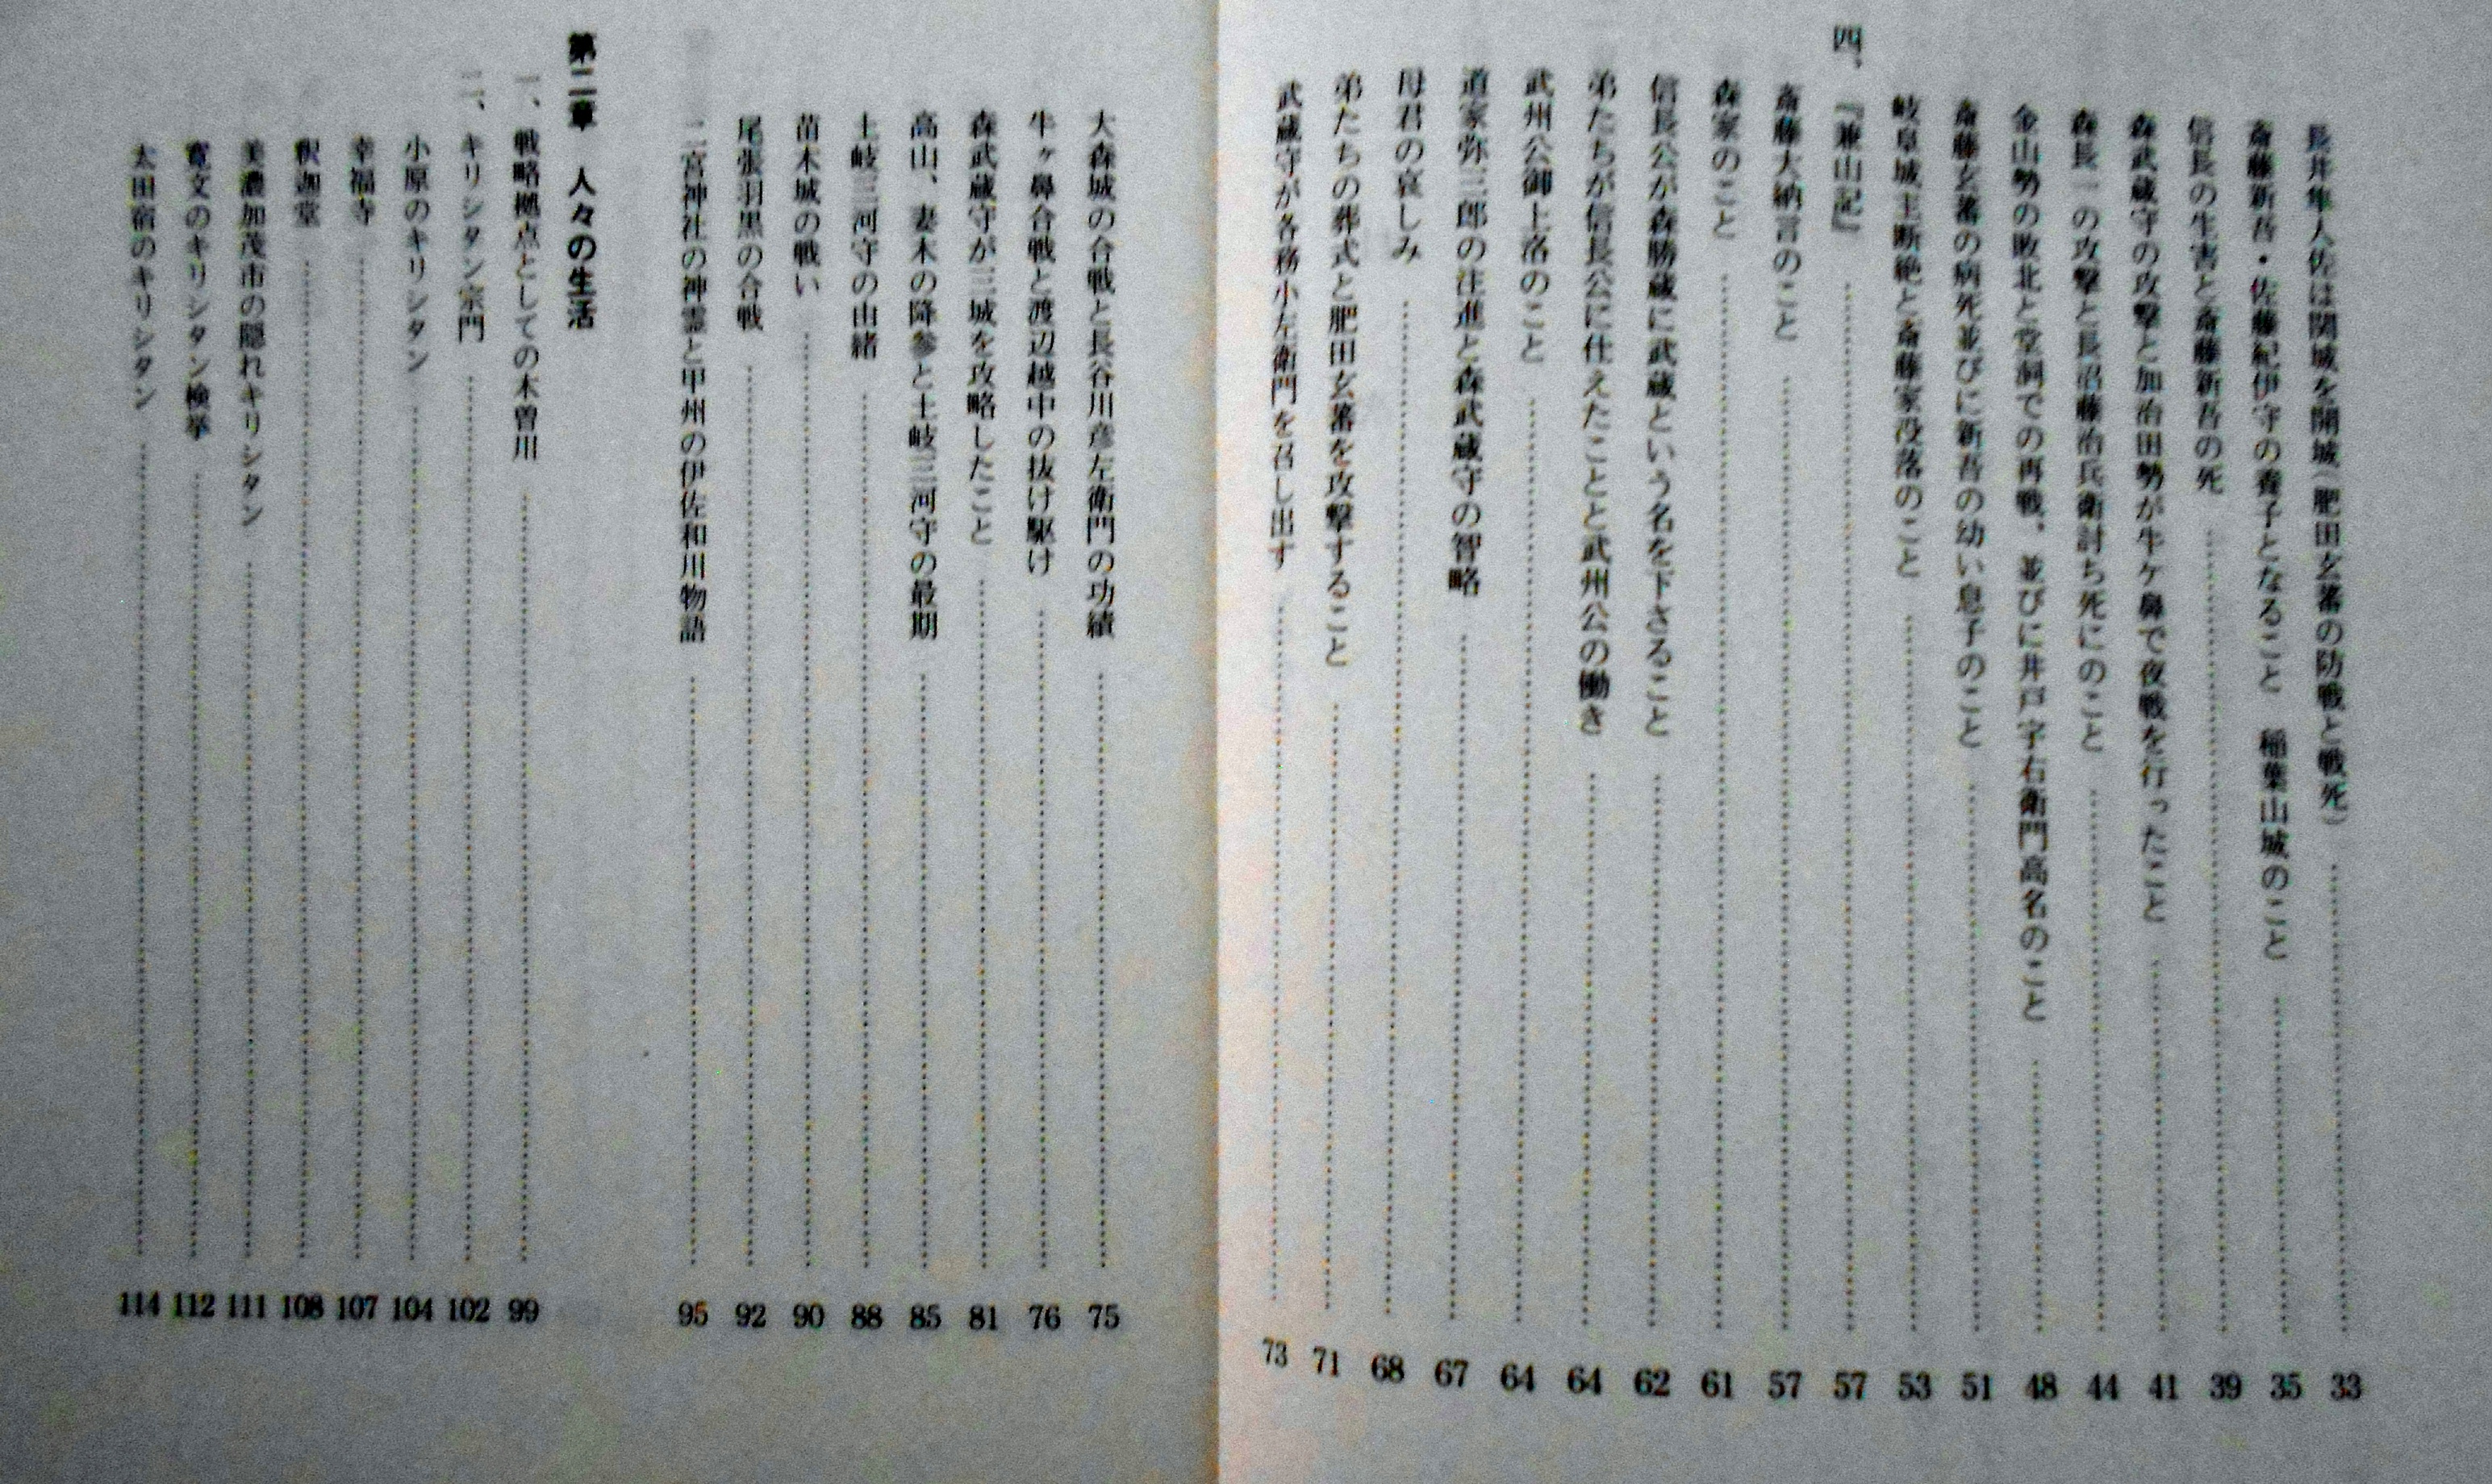 長井隼人佐は関城を開城（肥田玄蕃の防戦と戦死） 33
斎藤新吾・佐藤紀伊守の養子となること　稲葉山城のこと 35
信長の生害と斎藤新吾の死 39
森武蔵守の攻撃と加治田勢が牛ケ鼻で夜戦を行ったこと 41
森長一の攻撃と長沼藤治兵衛討ち死にのこと 44
金山勢の敗北と堂洞での再戦、並びに井戸宇右衛門高名のこと 48
斎藤玄蕃の病死並びに新吾の幼い息子のこと 51
岐阜城主断絶と斎藤家没落のこと 53
四、『兼山記』 57
斎藤大納言のこと 57
森家のこと 61
信長公が森勝蔵に武蔵という名を下さること 62
弟たちが信長公に仕えたことと武州公の働き 64
武州公御上洛のこと 64
道家弥三郎の注進と森武蔵守の智略 67
母君の哀しみ 68
弟たちの葬式と肥田玄蕃を攻撃すること 71
武蔵守が各務小左衛門を召し出す 73
大森城の合戦と長谷川彦左衛門の功績 75
牛ヶ鼻合戦と渡辺越中の抜け駆け 76
森武蔵守が三城を攻略したこと 81
高山、妻木の降参と土岐三河守の最期 85
土岐三河守の由緒 88
苗木城の戦い 90
尾張羽黒の合戦 92
二宮神社の神霊と甲州の伊佐和川物語 95
第二章　人々の生活
一、戦略拠点としての木曽川 99
二、キリシタン宗門 102
小原のキリシタン 104
幸福寺 107
釈迦堂 108
美濃加茂市の隠れキリシタン 111
寛文のキリシタン検挙 112
太田宿のキリシタン 114